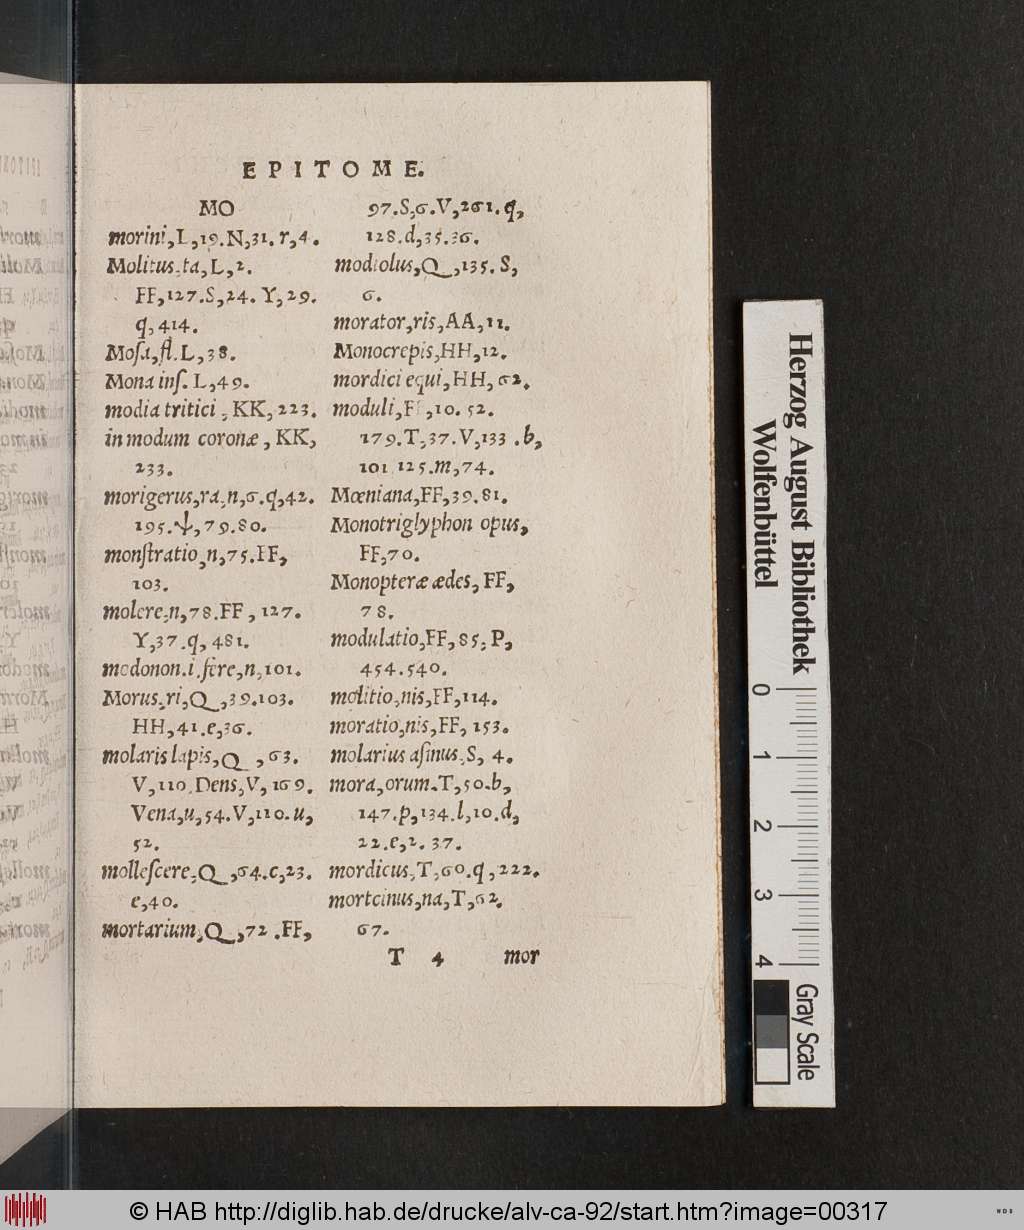 EPITOME.
MO
morini, L, 19. N, 31. r, 4.
Molitus, ta, L, 2.
FF, 127. S, 24. Y, 29.
q, 414.
Moſa, fl. L, 38.
Mona inſ. L, 49.
modia tritici, KK, 223.
in modum coronæ, KK,
233.
morigerus, ra, n, 6. q, 42.
195. ψ, 79. 80.
monſtratio, n, 75. FF,
103.
molere, n, 78. FF, 127.
Y, 37. q, 481.
modonon. i. fere, n, 101.
Morus, ri, Q, 39. 103.
HH, 41. e, 36.
molaris lapis, Q, 63.
V, 110. Dens, V, 169.
Vena, u, 54. V, 110. u,
52.
molleſcere, Q, 64. c, 23.
e, 40.
mortarium, Q, 72. FF,
97. S, 6. V, 261. q,
128. d, 35. 36.
modiolus, Q, 135. S,
6.
morator, ris, AA, 11.
Monocrepis, HH, 12.
mordici equi, HH, 62.
moduli, FF, 10. 52.
179. T, 37. V, 133. b,
101 125. m, 74.
Mœniana, FF, 39. 81.
Monotriglyphon opus,
FF, 70.
Monopteræ ædes, FF,
78.
modulatio, FF, 85. P,
454. 540.
molitio, nis, FF, 114.
moratio, nis, FF, 153.
molarius aſinus, S, 4.
mora, orum. T, 50. b,
147. p, 134. l, 10. d,
22. e, 2. 37.
mordicus, T, 60. q, 222.
morticinus, na, T, 62.
67.
T 4 mor
Herzog August Bibliothek
Wolfenbüttel
0 1 2 3 4
Gray Scale
© HAB http://diglib.hab.de/drucke/alv-ca-92/start.htm?image=00317